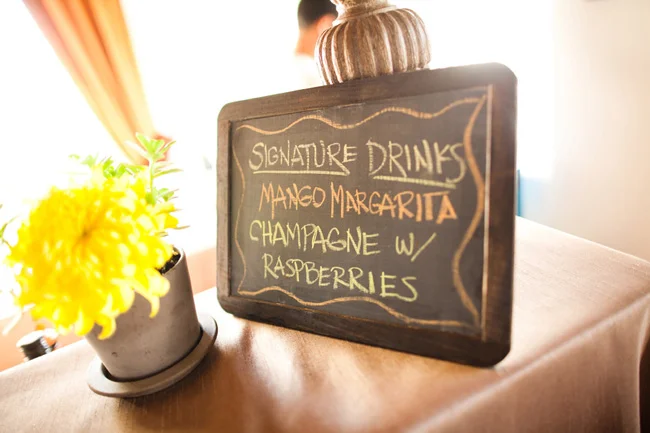 SIGNATURE DRINKS
MANGO MARGARITA
CHAMPAGNE W/
RASPBERRIES